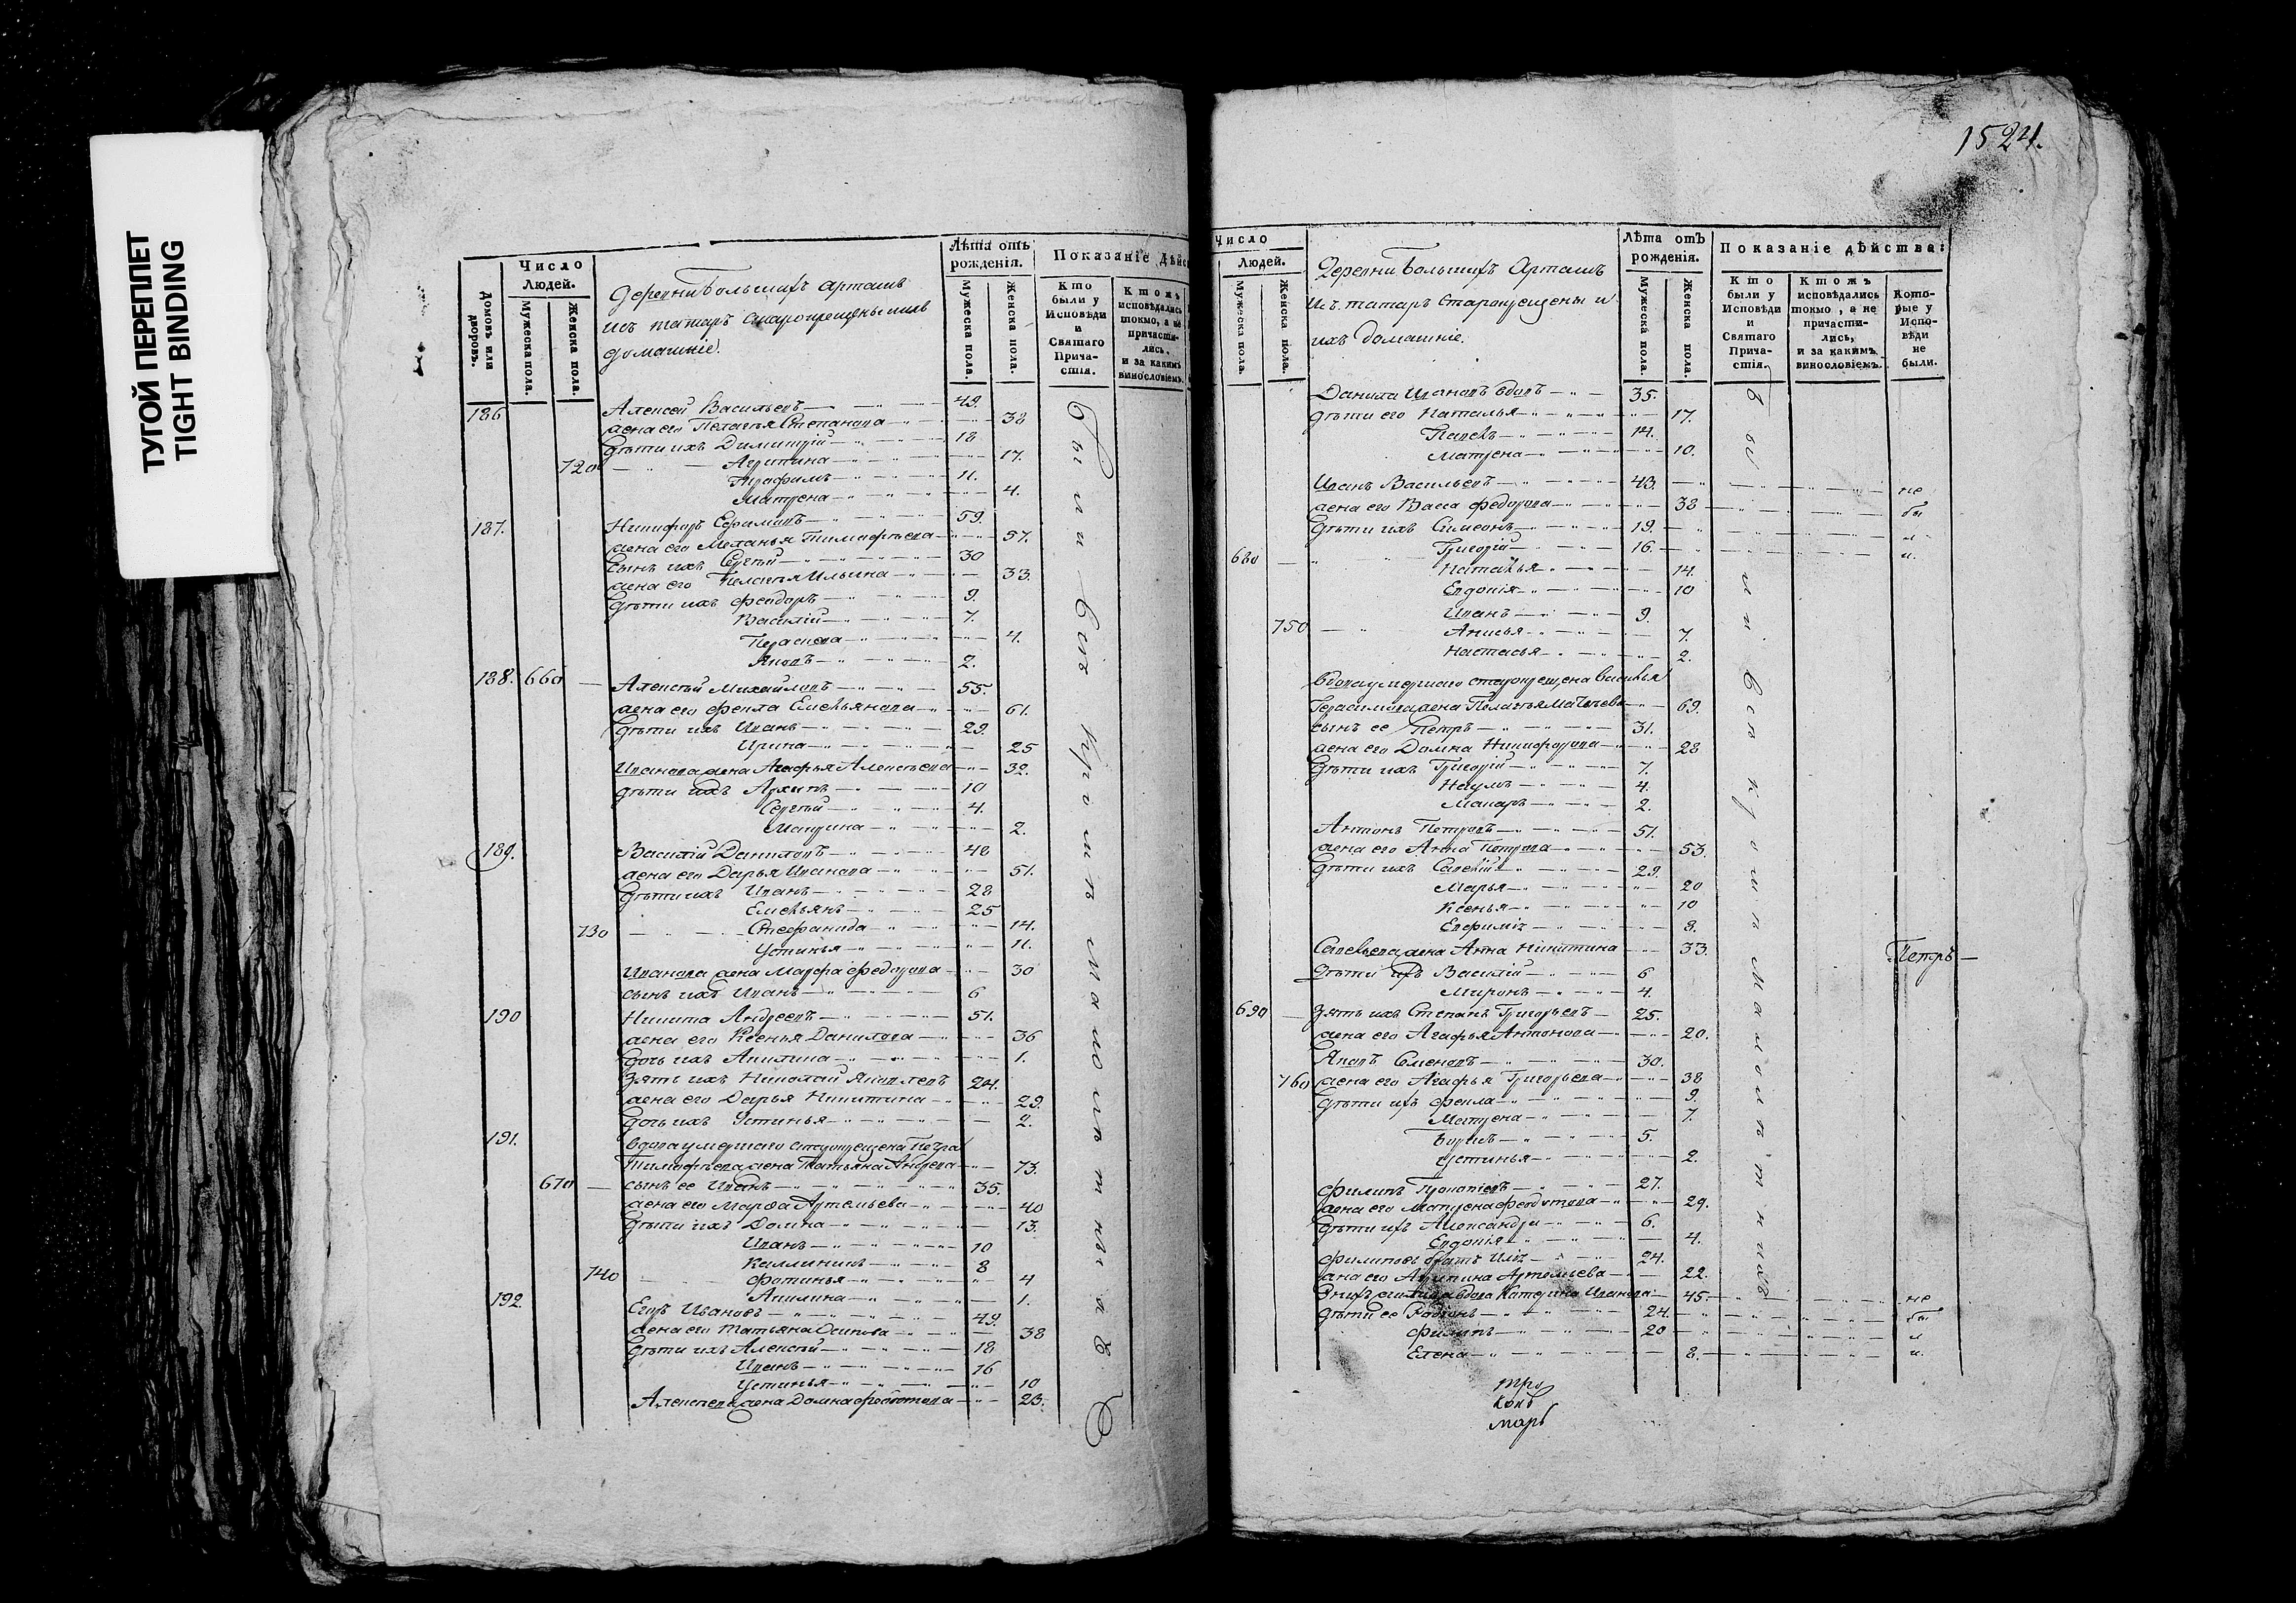 ТУГОЙ ПЕРЕПЛЕТ
TIGHT BINDING
1524.
Домовъ или дворовъ.
Число Людей.
Мужеска пола.
Женска пола.
Деревни Большихъ Арташъ
изъ татаръ старокрещены и ихъ
домашніе.
Лѣта отъ рожденія.
Мужеска пола.
Женска пола.
Показаніе Дѣйс
Кто были у Исповѣди и Святаго Прича-стія.
Ктожъ исповѣдались токмо, а не причасти-лись, и за какимъ винословіемъ.
186 Алексѣй Васильевъ 49.
жена его Пелагья Степанова 38
Дѣти ихъ Димитрій 18
720 Агрипина 17.
Трафимъ 11.
Матрена 4.
187. Никифоръ Ефимовъ 59.
жена его Меланья Тимофѣева 57.
Сынъ ихъ Сергѣй 30
жена его Пелагея Ильина 33.
Дѣти ихъ Феодоръ 9.
Василій 7.
Пераскева 4.
Яковъ 2.
188. 660 Алексѣй Михайловъ 55.
жена его Фекла Емельянова 61.
Дѣти ихъ Иванъ 29.
Ирина 25
Иванова жена Агафья Алексѣева 32.
дѣти ихъ Архипъ 10
Сергѣй 4.
Макрина 2.
189. Василій Даниловъ 48
жена его Дарья Иванова 51.
Дѣти ихъ Иванъ 28
Емельянъ 25
730 Стефанида 14.
Устинья 11.
Иванова жена Марфа Федорова 30
сынъ ихъ Иванъ 6
190 Никита Андреевъ 51.
жена его Ксенья Данилова 36
дочь ихъ Акилина 1.
Зять ихъ Николай Яковлевъ 24.
жена его Дарья Никитина 29.
дочь ихъ Устинья 2.
191. вдова умершаго старокрещена Петра
Тимофѣева жена Татьяна Андреева 73.
670 сынъ ее Иванъ 35.
жена его Марфа Артемьева 40
Дѣти ихъ Домна 13.
Иванъ 10
Каллиникъ 8
740 Фотинья 4
Акилина 1.
192. Егоръ Ивановъ 49.
жена его Татьяна Осипова 38
Дѣти ихъ Алексѣй 18
Иванъ 16
Устинья 10
Алексѣева жена Домна Федотова 23.
Были у исповѣди
Число Людей.
Мужеска пола.
Женска пола.
Деревни Большихъ Арташъ
изъ татаръ старокрещены и
ихъ домашніе.
Лѣта отъ рожденія.
Мужеска пола.
Женска пола.
Показаніе дѣйства:
Кто были у Исповѣди и Святаго Прича-стія.
Ктожъ исповѣдались токмо, а не причасти-лись, и за какимъ винословіемъ.
Кото-рые у Испо-вѣди не были.
Данила Ивановъ вдовъ 35.
дѣти его Наталья 17.
Павелъ 14.
Матрена 10.
Иванъ Васильевъ 43. не
жена его Васса Федорова 38 бы
Дѣти ихъ Симеонъ 19. л
680 Григорій 16. и.
Наталья 14.
Евдокія 10
Иванъ 9.
750 Анисья 7.
Настасья 2.
вдова умершаго старокрещена Василья
Герасимова жена Пелагья Матвѣева 69.
сынъ ее Петръ 31.
жена его Домна Никифорова 28
Дѣти ихъ Григорій 7.
Наумъ 4.
Макаръ 2.
Антонъ Петровъ 51.
жена его Анна Петрова 53.
Дѣти ихъ Савелій 29.
Марья 20
Ксенья 10
8.
Савельева жена Анна Никитина 33. Петръ
Дѣти ихъ Василій 6
Миронъ 4.
690 Зять ихъ Степанъ Григорьевъ 25.
жена его Агафья Антонова 20.
Яковъ Семеновъ 30.
760 жена его Агафья Григорьева 38
Дѣти ихъ Фекла 9.
Матрена 7.
Борисъ 5.
Устинья 2.
Филипъ Прокопіевъ 27.
жена его Матрена Федотова 29.
Дѣти ихъ Александръ 6.
Евдокія 4.
Филиповъ братъ 24.
жена его Агрипина Артемьева 22.
вдова Катерина Иванова 45 не
Дѣти ее Родіонъ 24. бы
Филипъ 20 л
Елена 8. и.
тро
конъ
марь